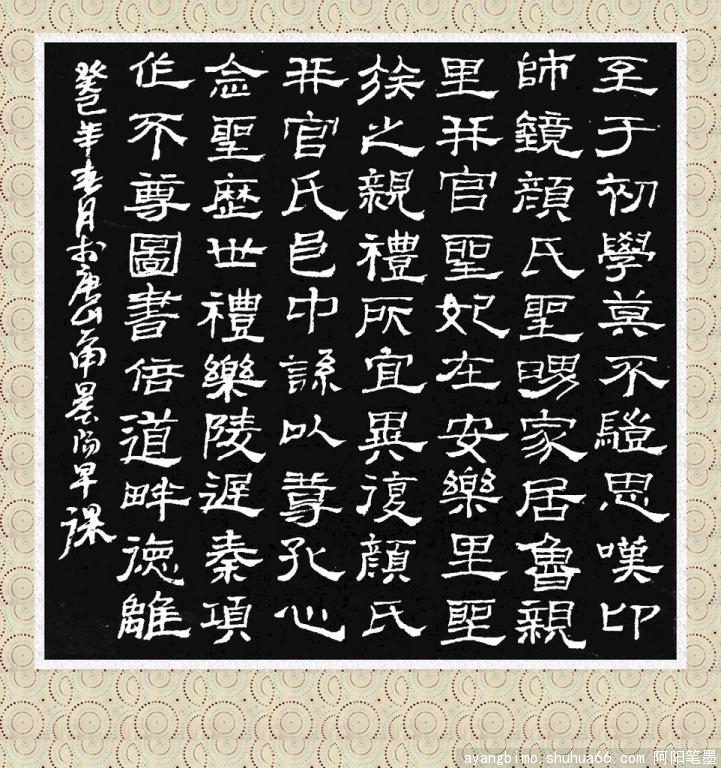 至于初學莫不思嘆卬
師鏡顏氏聖舅家居魯親
里并官聖妃在安樂里聖
族之親禮所宜異復顏氏
并官氏邑中繇以尊孔心
念聖歷世禮樂陵遲秦項
作不尊圖書倍道畔德離
癸巳年春月於唐山阳早課
ayangbimo.shuhua66.com 阿阳笔墨